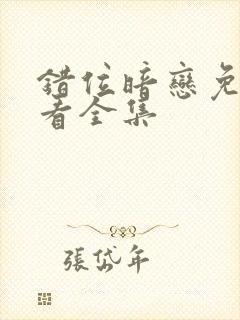 錯位暗戀免
看全集
張岱年